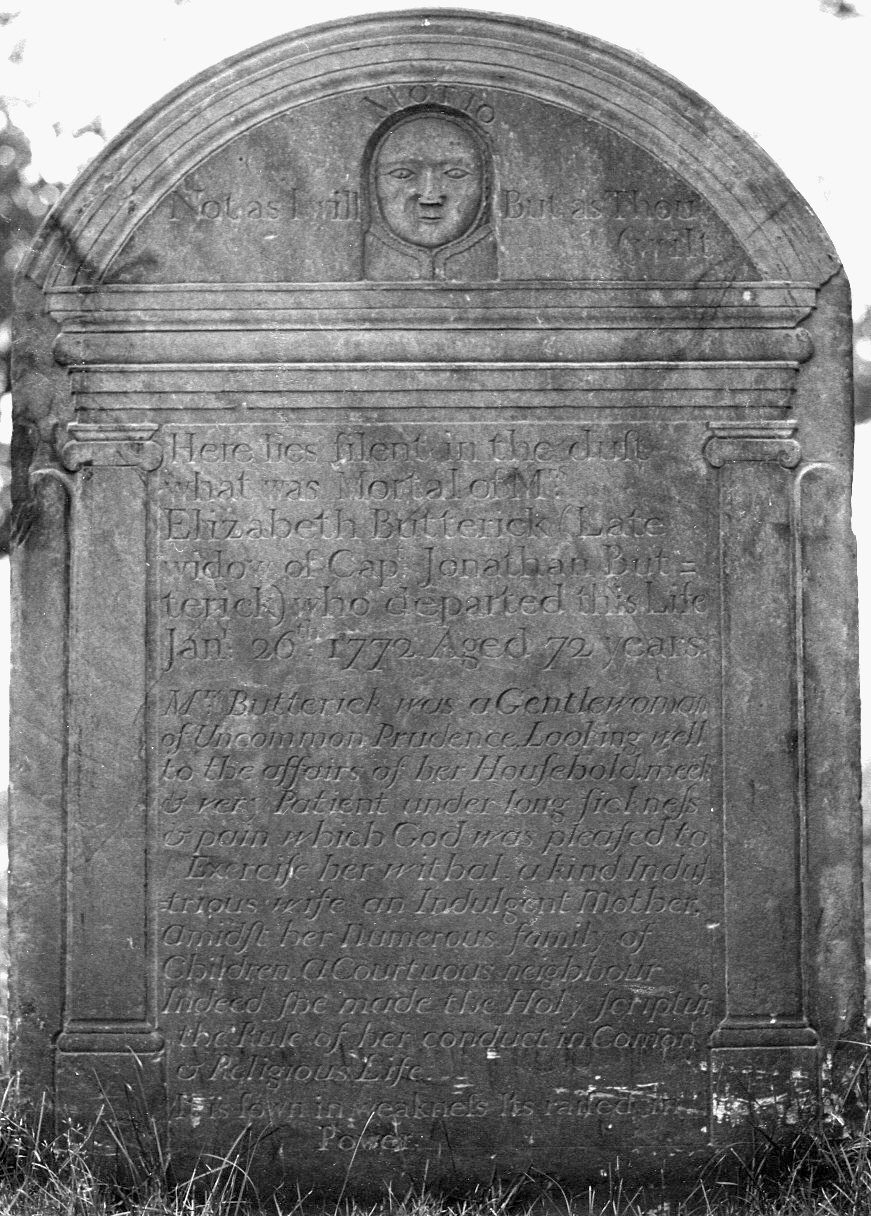 MOTTO
Not as I will But as Thou
wilt
Here lies ſilent in the duſt
what was Mortal of Mrs.
Elizabeth Butterick (Late
widow of Capt. Jonathan But=
terick) who departed this Life
Jan'y. 26th. 1772. Aged 72 years.
Mrs. Butterick was a Gentlewoman
of Uncommon Prudence, Looking well
to the affairs of her Houſehold, meek
& very Patient under long ſickneſs
& pain which God was pleaſed to
Exerciſe her withal. a kind Induſ
=trious wife an Indulgent Mother,
Amidſt her Numerous family of
Children. A Courtuous neighbour
Indeed ſhe made the Holy ſcriptur
the Rule of her conduct in Com̄on
& Religious Life.
It is ſown in weakneſs Its raiſed in
Power.